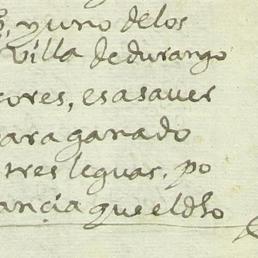 , y uno de los
Villa de durango
ores, es a sauer
para ganado
tres leguas, po
ancia que el dho